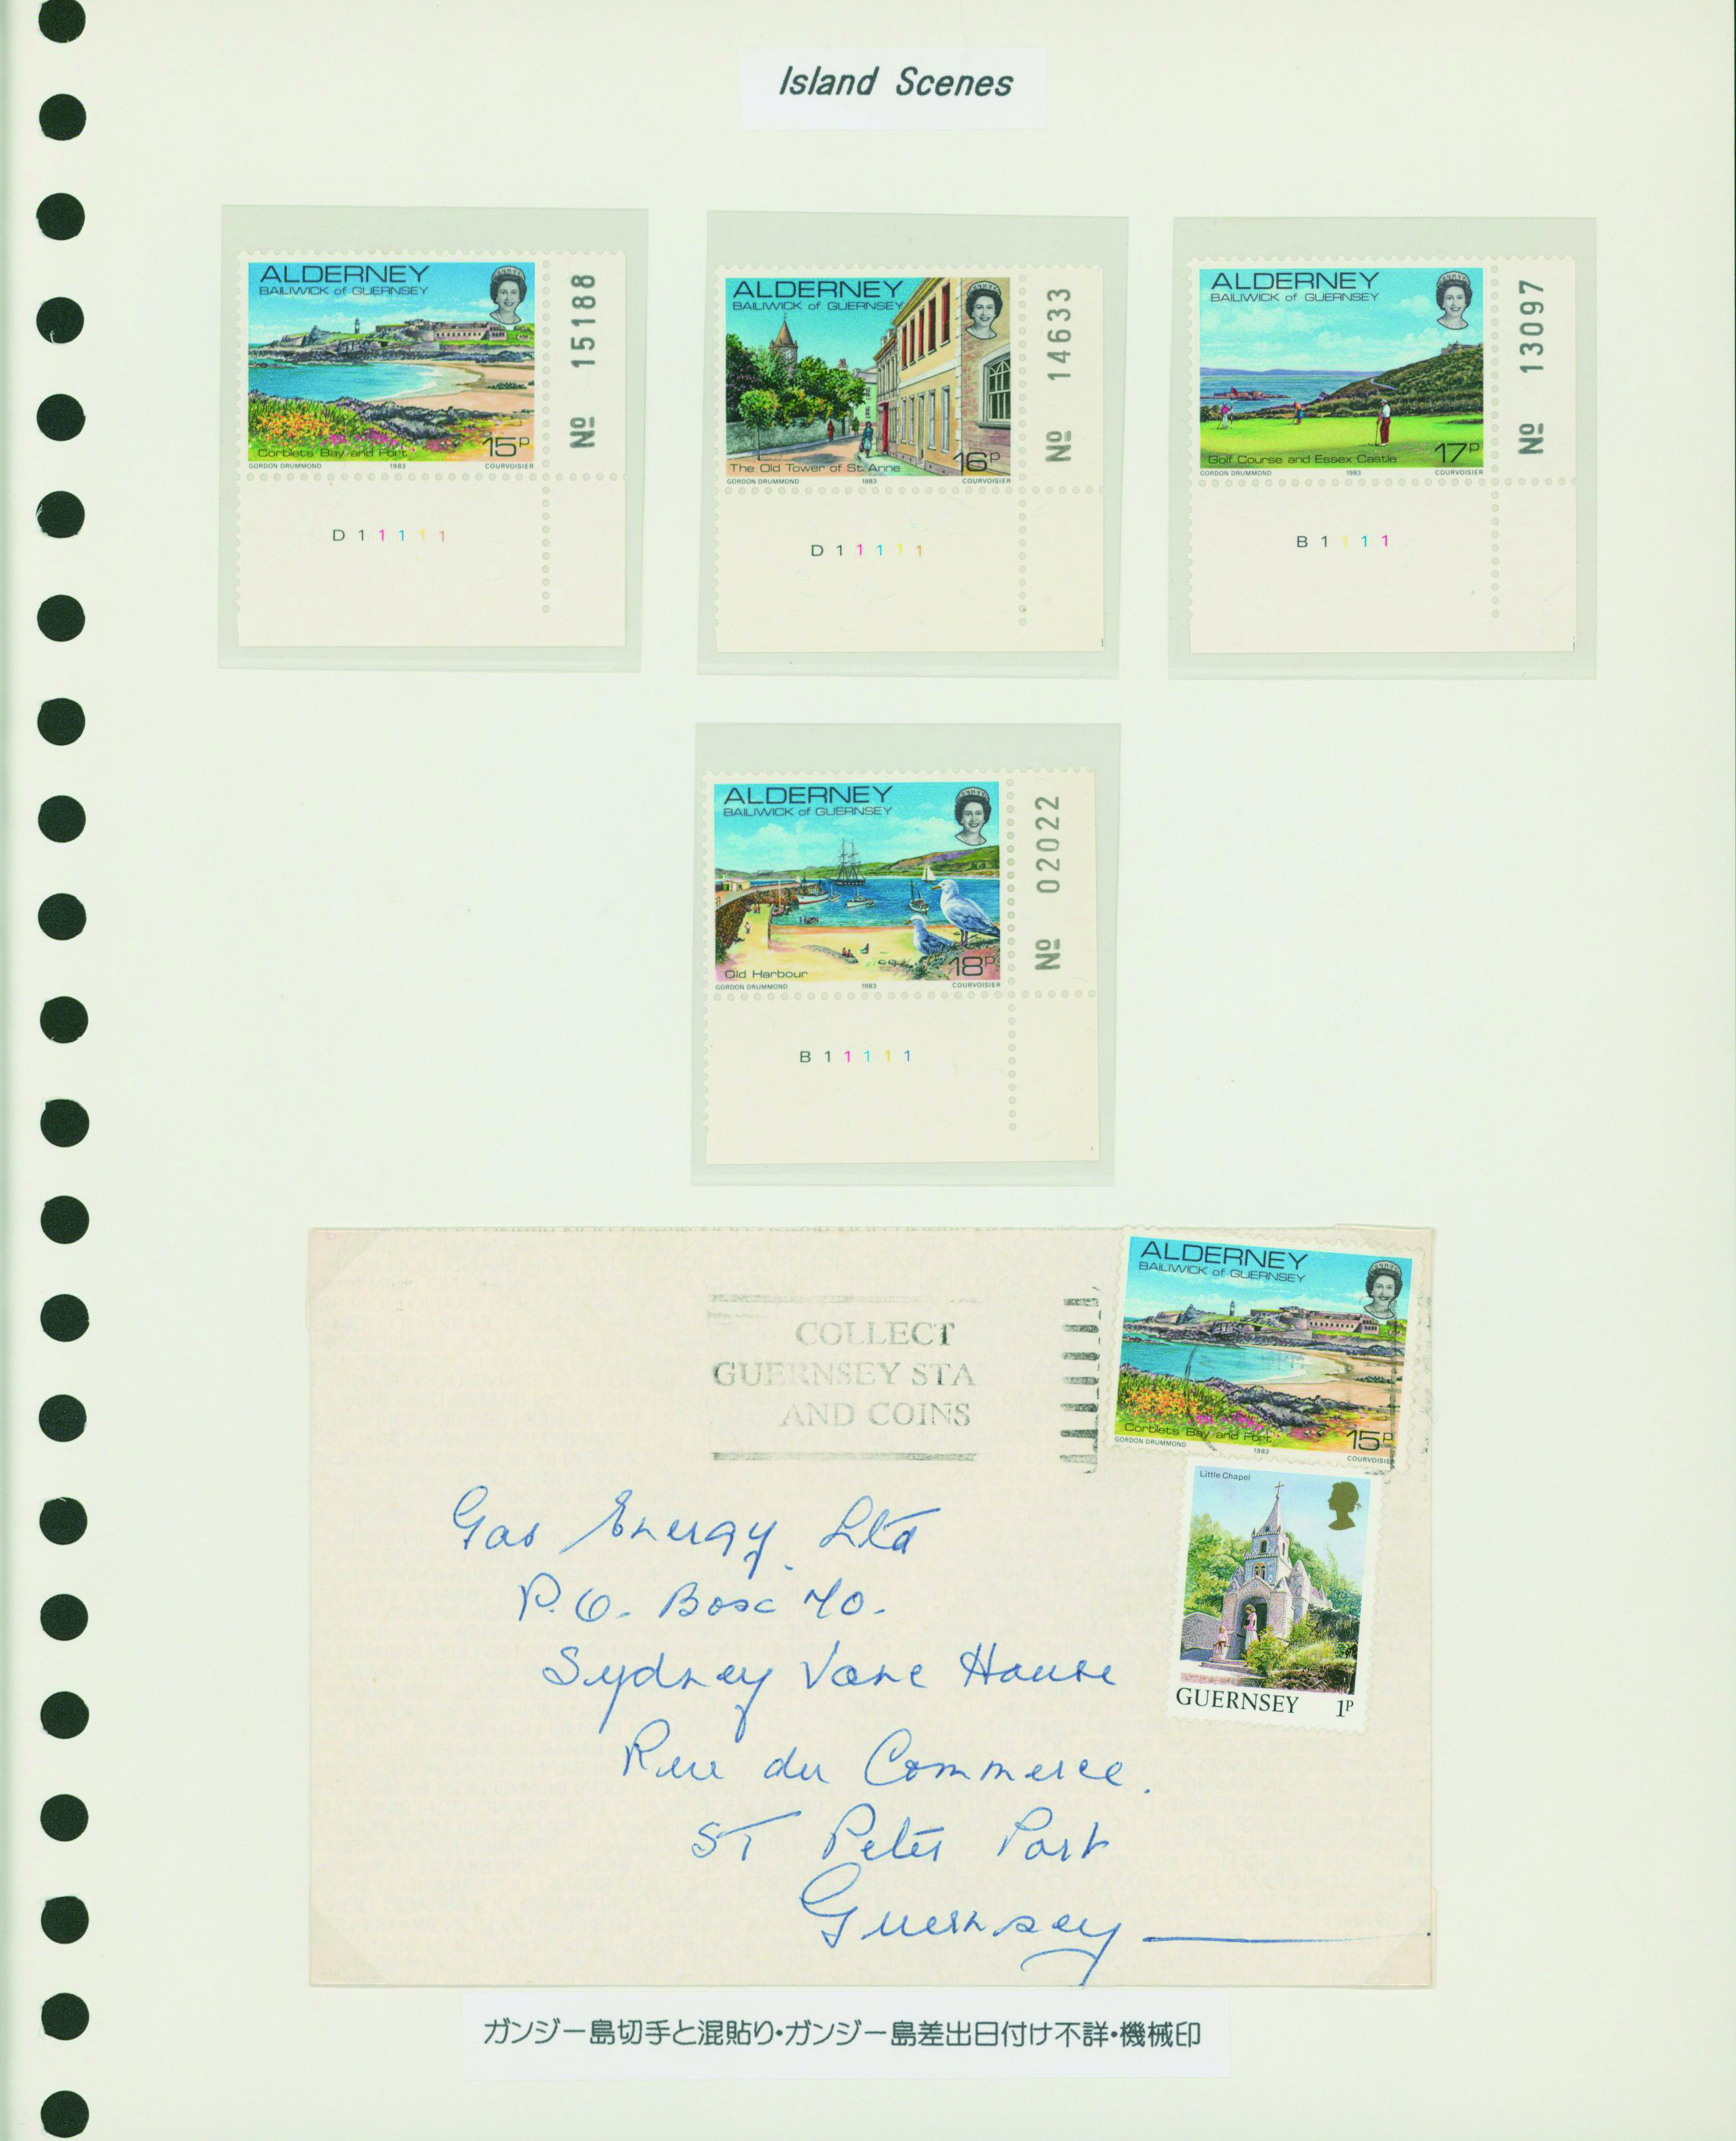 Island Scenes
ALDERNEY
BAILIWICK of GUERNSEY
Corblets Bay and Fort
15P
GORDON DRUMMOND 1983 COURVOISIER
No 15188
D 1 1 1 1 1
ALDERNEY
BAILIWICK of GUERNSEY
The Old Tower of St. Anne
16P
GORDON DRUMMOND 1983 COURVOISIER
No 14633
D 1 1 1 1 1
ALDERNEY
BAILIWICK of GUERNSEY
Golf Course and Essex Castle
17P
GORDON DRUMMOND 1983 COURVOISIER
No 13097
B 1 1 1 1
ALDERNEY
BAILIWICK of GUERNSEY
Old Harbour
18P
GORDON DRUMMOND 1983 COURVOISIER
No 02022
B 1 1 1 1 1
COLLECT
GUERNSEY STA
AND COINS
ALDERNEY
BAILIWICK of GUERNSEY
Corblets Bay and Fort
15P
GORDON DRUMMOND 1983 COURVOISIER
Little Chapel
GUERNSEY 1P
Gas Energy Ltd
P.O. Box 70.
Sydney Vane House
Rue du Commerce.
ST Peter Port
Guernsey
ガンジー島切手と混貼り・ガンジー島差出日付け不詳・機械印